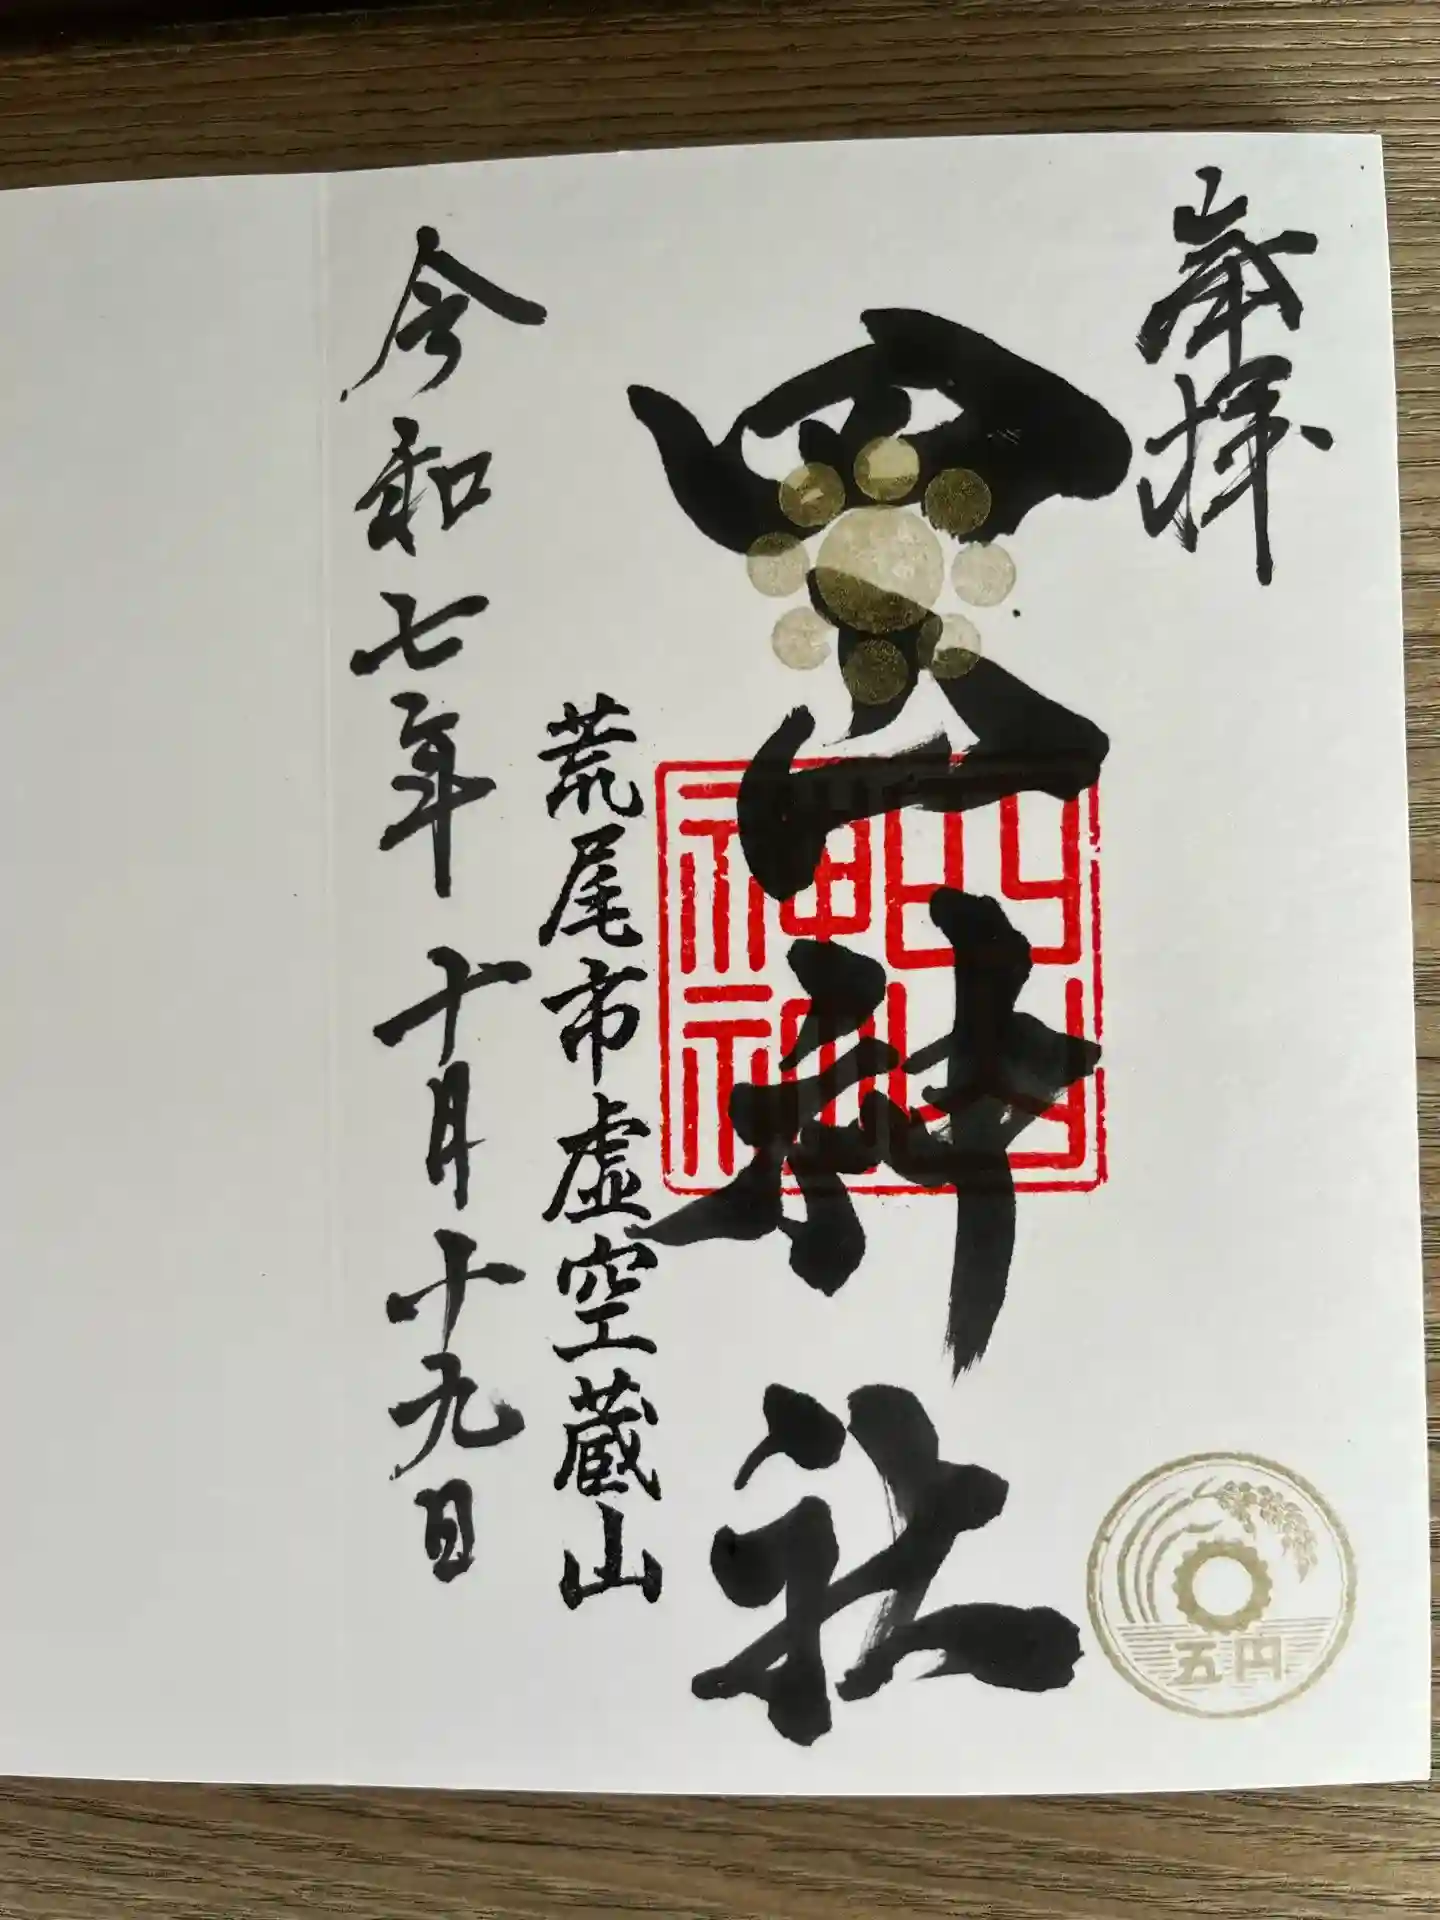 奉拝
四山神社
四山
神社
荒尾市虚空蔵山
令和七年十月十九日
五円